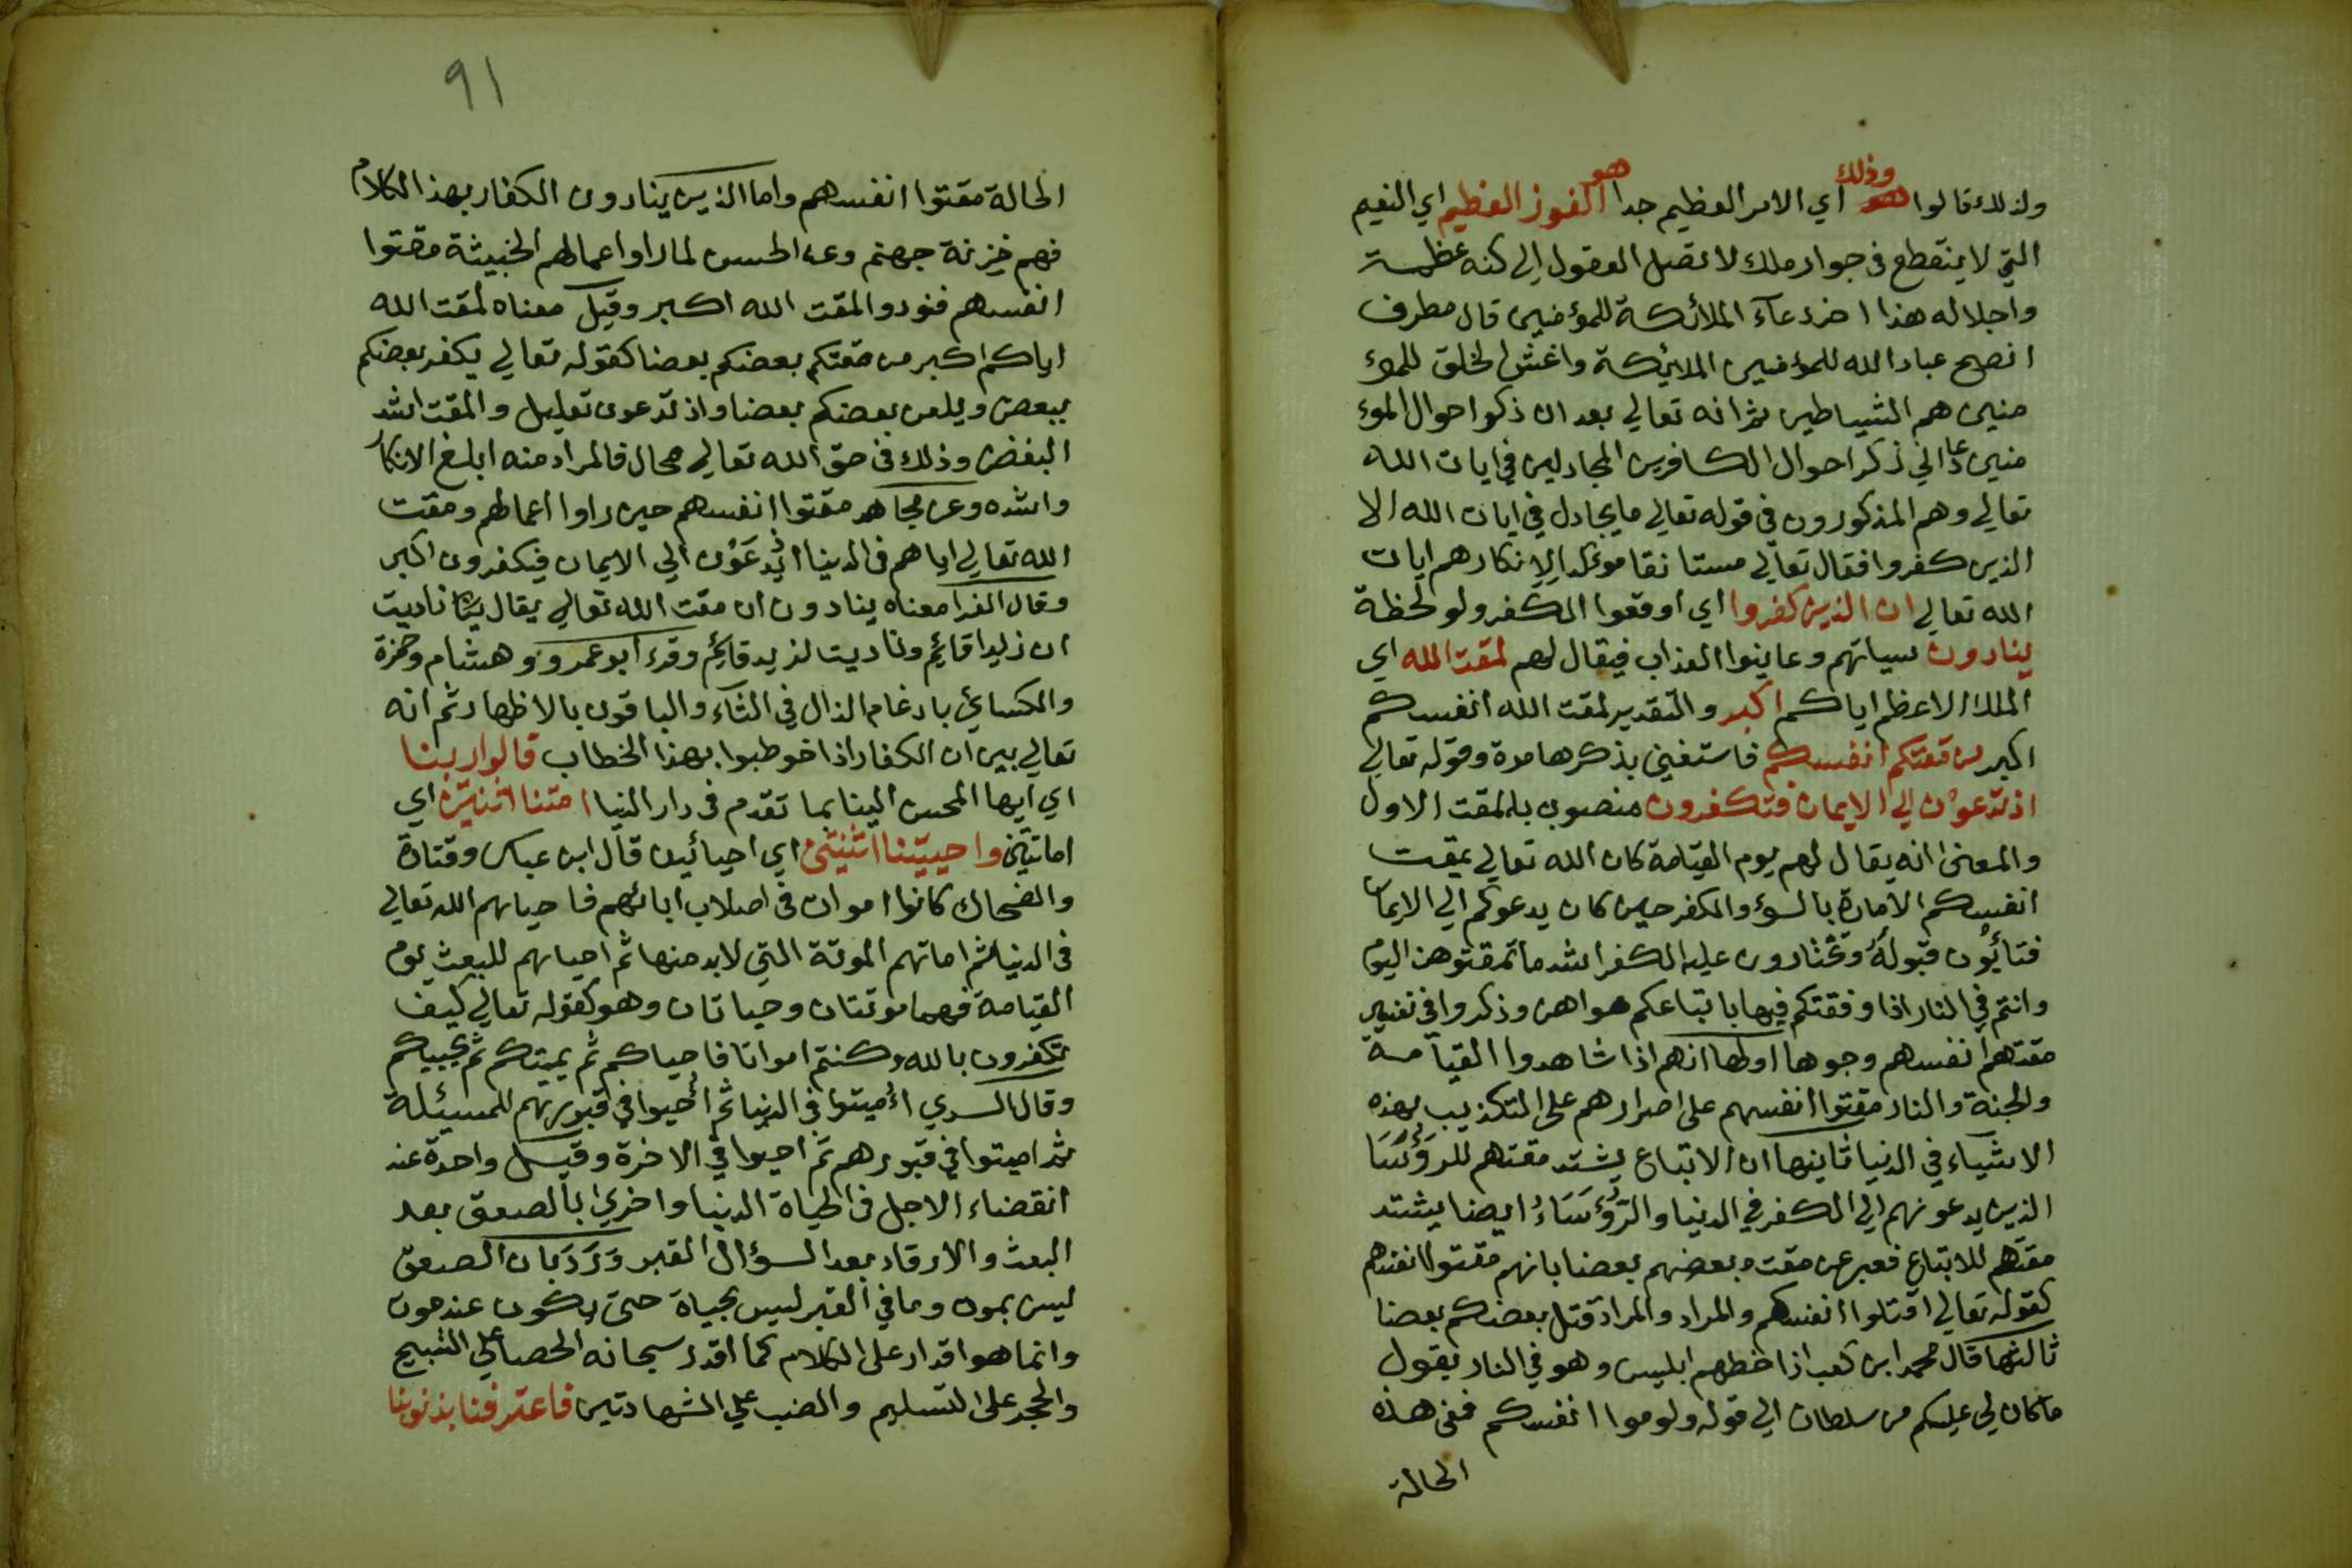 ولذلك قالوا وذلك اي الامر العظيم جدا هو الفوز العظيم اي النعيم
التي لا ينقطع في جوار ملك لا تصل العقول الي كنه عظمته
واجلاله هذا اخر دعآء الملائكة للمؤمنين قال مطرف
انصح عباد الله للمؤمنين الملائكة واغش الخلق للمؤ
منين هم الشياطين ثم انه تعالي بعد ان ذكر احوال المؤ
منين عاد الي ذكر احوال الكافرين المجادلين في ايات الله
تعالي وهم المذكورون في قوله تعالي ما يجادل في ايات الله الا
الذين كفروا فقال تعالي مستانفا مؤكدا لانكارهم ايات
الله تعالي ان الذين كفروا اي اوقعوا الكفر ولو لحظة
ينادون سياتهم وعاينوا العذاب فيقال لهم لمقت الله اي
الملك الاعظم اياكم اكبر والتقدير لمقت الله انفسكم
اكبر من مقتكم انفسكم فاستغني بذكرها مرة وقوله تعالي
اذ تدعون الي الايمان فتكفرون منصوب بالمقت الاول
والمعنى انه يقال لهم يوم القيامة كان الله تعالي يمقت
انفسكم الامارة بالسؤ والكفر حين كان يدعوكم الي الايمان
فتأبون قبوله وتختارون عليه الكفر اشد ما تمقتوهن اليوم
وانتم في النار اذا وقعتكم فيها باتباعكم هواهن وذكروا في تفسير
مقتهم انفسهم وجوها اولها انهم اذا شاهدوا القيآمة
والجنة والنار مقتوا انفسهم على اصرارهم على التكذيب بهذه
الاشياء في الدنيا ثانيها ان الاتباع يشتد مقتهم للرؤسا
الذين يدعونهم الي الكفر في الدنيا والرؤساء ايضا يشتد
مقتهم للاتباع فعبر عن مقت بعضهم بعضا بانهم مقتوا انفسهم
كقوله تعالي اقتلوا انفسكم والمراد والمراد قتل بعضكم بعضا
ثالثها قال محمد ابن كعب اذا خطبهم ابليس وهو في النار بقول
ما كان لي عليكم من سلطان الي قوله ولوموا انفسكم ففي هذه
الحالة
٩١
الحالة مقتوا انفسهم واما الذين ينادون الكفار بهذا الكلام
فهم خزنة جهنم وعن الحسن لما راوا اعمالهم الخبيثة مقتوا
انفسهم فنودوا لمقت الله اكبر وقيل معناه لمقت الله
اياكم اكبر من مقتكم بعضكم بعضا كقوله تعالي يكفر بعضكم
ببعض ويلعن بعضكم بعضا واذ تدعون تعليل والمقت اشد
البغض وذلك في حق الله تعالي محال فالمراد منه ابلغ الانكار
واشده وعن مجاهد مقتوا انفسهم حين راوا اعمالهم ومقت
الله تعالي اياهم في الدنيا اذ يدعون الي الايمان فيكفرون اكبر
وقال الفرا معناه ينادون ان مقت الله تعالي يقال ناديت
ان زيدا قائم وناديت لزيد قائم وقرء ابو عمرو وهشام وحمزة
والكسائي بادغام الذال في التآء والباقون بالاظهار ثم انه
تعالي بين ان الكفار اذا خوطبوا بهذا الخطاب قالوا ربنا
اي ايها المحسن الينا بما تقدم في دار الدنيا امتنا اثنتين اي
اماتتين واحييتنا اثنتين اي احيائين قال ابن عباس وقتادة
والضحاك كانوا اموات في اصلاب ابائهم فاحياهم الله تعالي
في الدنيا ثم اماتهم الموتة التي لابد منها ثم احياهم للبعث يوم
القيامة فهما موتتان وحياتان وهو كقوله تعالي كيف
تكفرون بالله وكنتم امواتا فاحياكم ثم يميتكم ثم يحييكم
وقال السدي اميتوا في الدنيا ثم أحيوا في قبورهم للمسيئلة
ثم اميتوا في قبورهم ثم احيوا في الاخرة وقيل واحدة عند
انقضاء الاجل في الحياة الدنيا واخري بالصعق بعد
البعث والارقاد بعد السؤال القبر ورد بان الصعق
ليس بموت وما في القبر ليس بحياة حتى يكون عند موت
وانما هو اقدار على الكلام كما اقدر سبحانه الحصا علي التسبيح
والحجر على التسليم والضب علي الشهادتين فاعترفنا بذنوبنا